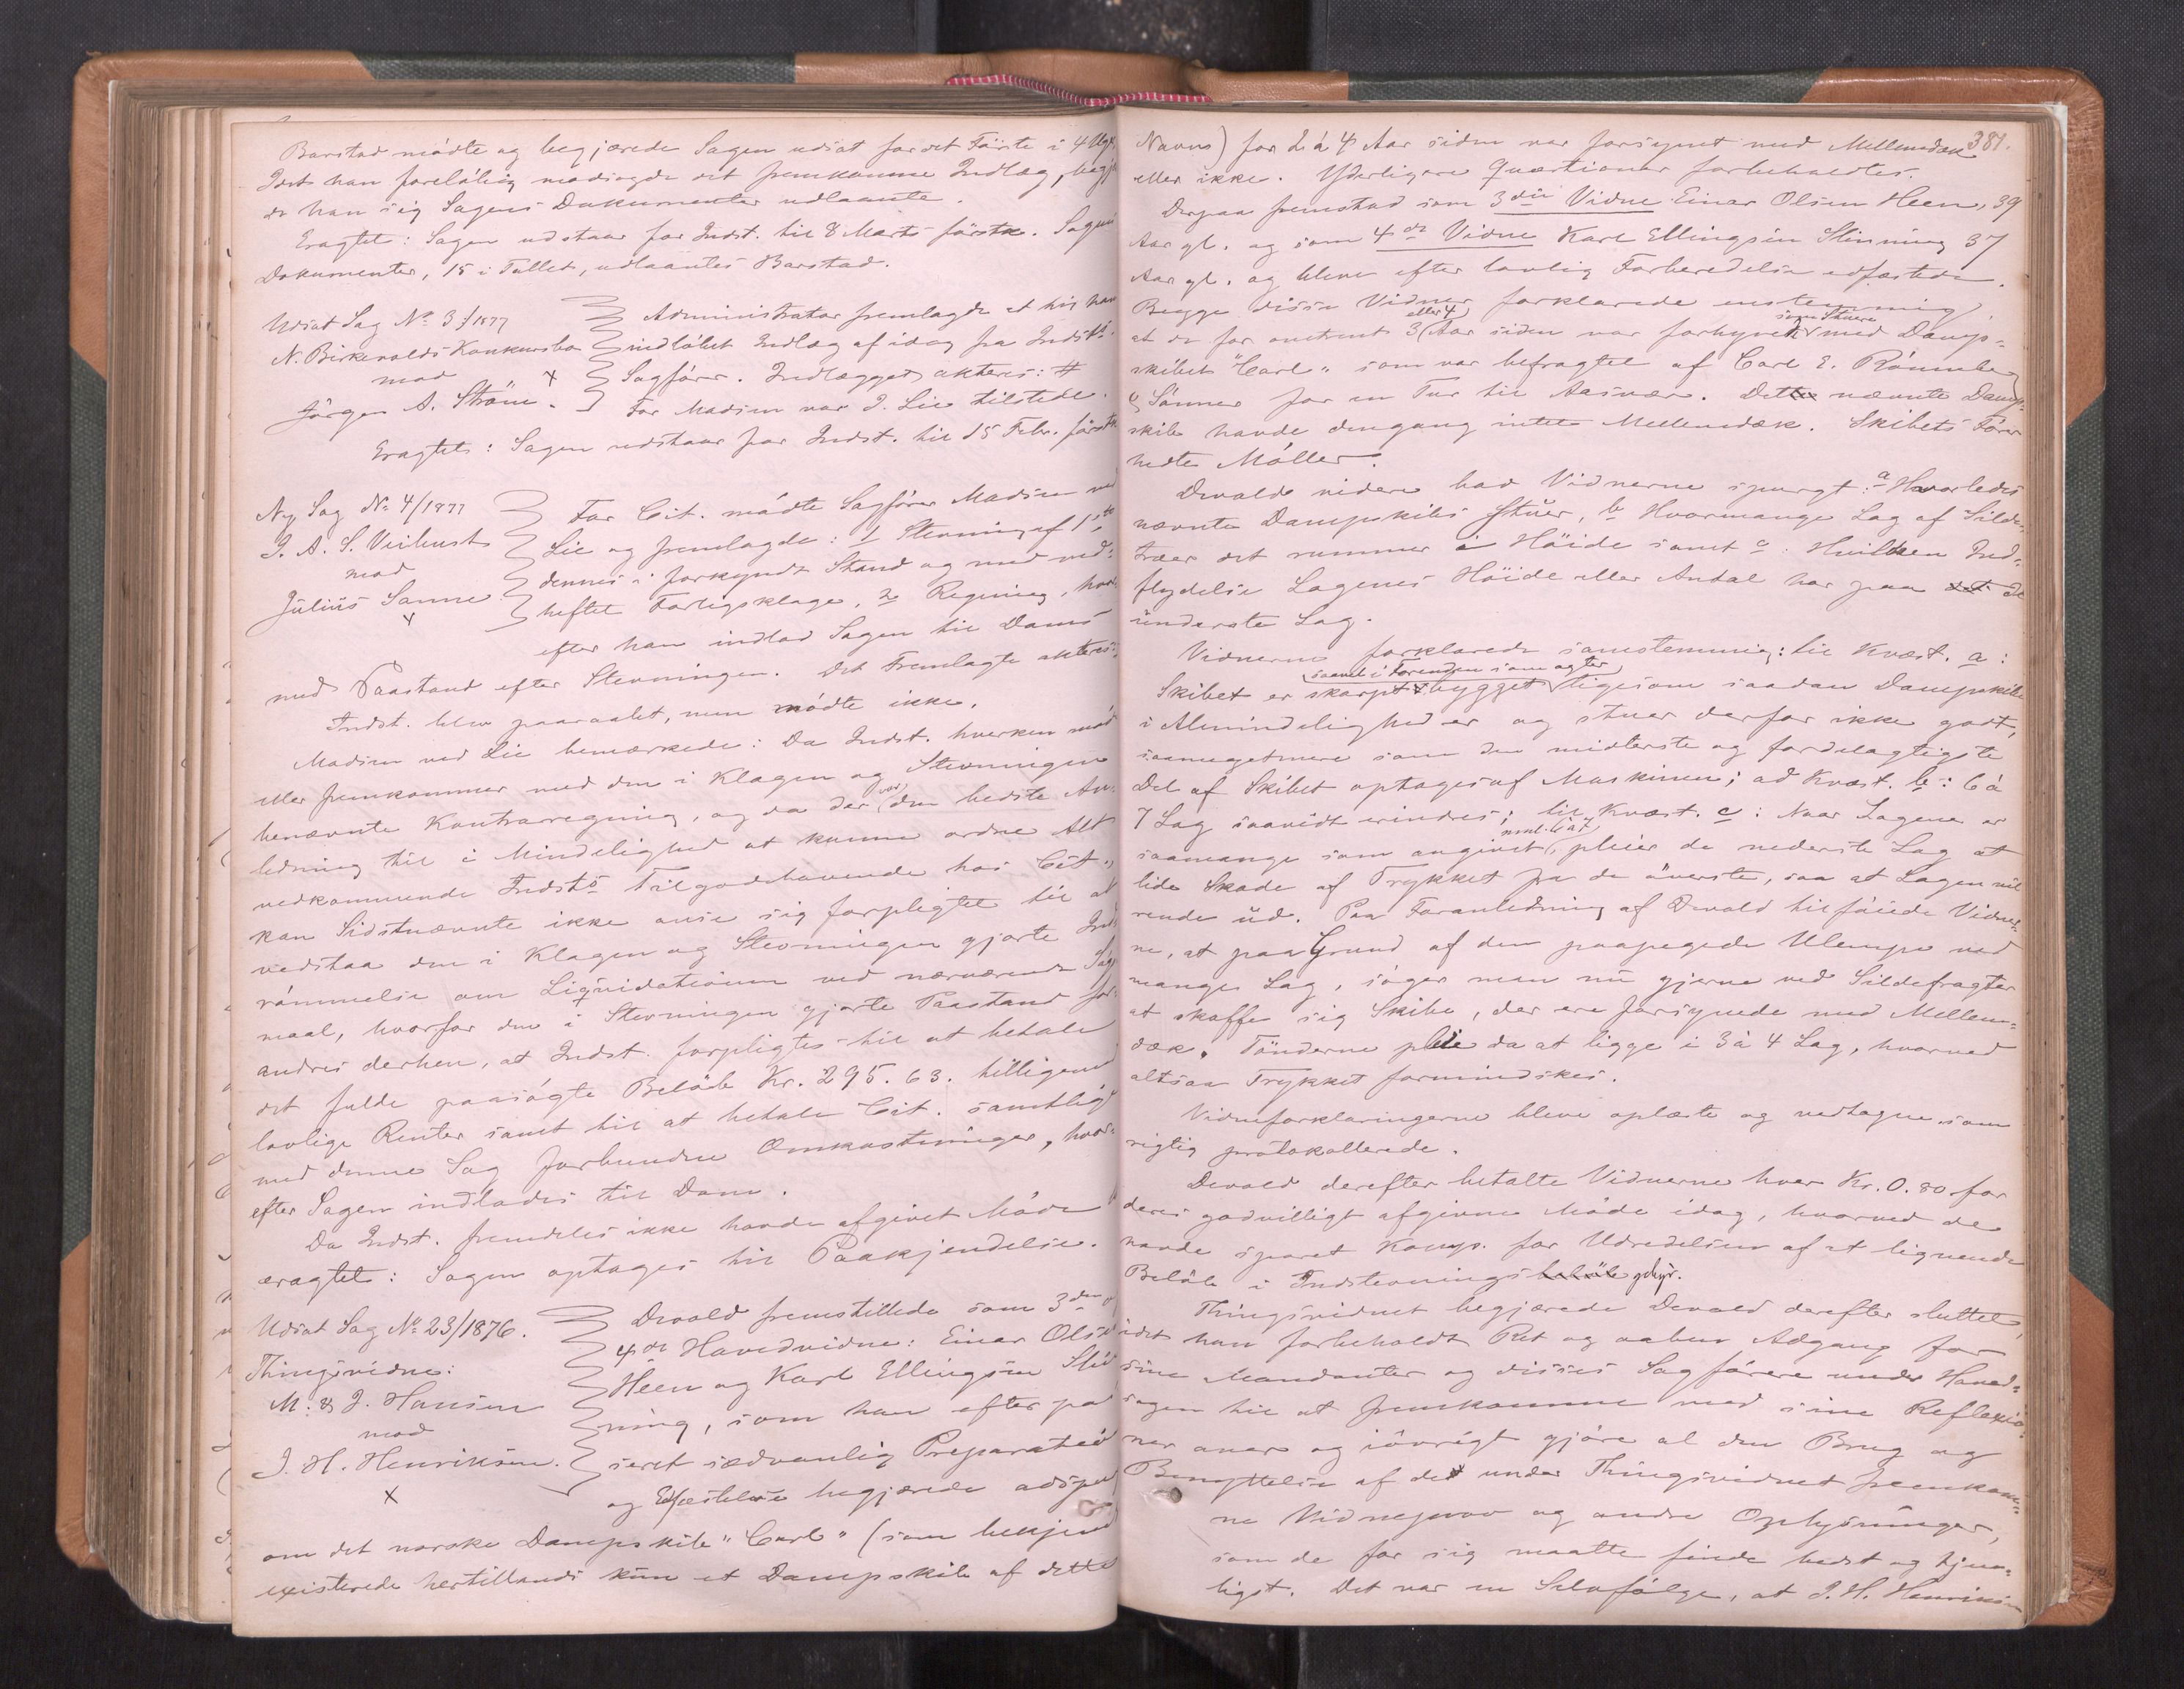 Barstad mödte og begjærede Sagen udsat for det Förste i 4 Uger,
Idet han foreløbig modsagde det fremkomne Indlæg, begj
de han sig Sagens Dokumenter udlaante.
Eragtet: Sagen udstaar for Indst. til 8 Marts förstk. Sagens
Dokumenter, 15 i Tallet, udlaantes Barstad.
Udsat Sag No 3/1877
N. Birkevolds Konkursbo
mod
Jørgen A. Ström.
Administrator fremlagde et hos ham
indløbet Indlæg af idag fra Indsts.
Sagfører. Indlægget akteres: #
For Madsen var I. Lie tilstede.
Eragtet: Sagen udstaar for Indst. til 15 Febr. förstk
Ny Sag No 4/1877
I. A. S. Veibust
mod
Julius Sanne
For Cit. mödte Sagfører Madsen ved
Lie og fremlagde: 1 Stevning af 1ste
dennes i forkyndt Stand og med ved-
heftet Forligsklage, 2 Regning, hvor-
efter han indlod Sagen til Doms
med Paastand efter Stevningen. Det Fremlagte akteres:
Indst. blev paaraabt, men mödte ikke.
Madsen ved Lie bemærkede: Da Indst. hverken möd
eller fremkommer med den i Klagen og Stevningen
benævnte Kontraregning, og da der var den bedste An-
ledning til i Mindelighed at kunne ordne Alt
vedkommende Indsts Tilgodehavende hos Cit.,
kan Sidstnævnte ikke anse sig forpligtet til at
vedstaa den i Klagen og Stevningen gjorte Ind-
römmelse om Liqvidationen ved nærværende Sög-
maal, hvorfor den i Stevningen gjorte Paastand for-
andres derhen, at Indst. forpligtes til at betale
det fulde paasögte Belöb Kr. 295.63. tilligemed
lovlige Renter samt til at betale Cit. samtlige
med denne Sag forbundne Omkostninger, hvor-
efter Sagen indlodes til Dom.
Da Indst. fremdeles ikke havde afgivet Möde
eragtet: Sagen optages til Paakjendelse.
Udsat Sag No 23/1876.
Thingsvidne:
M. & J. Hansen
mod
J. H. Henriksen.
Devold fremstillede som 3die og
4de Hovedvidne: Einar Olsen
Heen og Karl Ellingsen Slin
ning, som han efter pas
seret sædvanlig Preparation
og Edfæstelse begjærede adspurgt
om det norske Dampskib "Carl" (som bekjend
existerede hertillands kun et Dampskib af dette
381.
Navn) for 2 á 4 Aar siden var forsynet med Mellemdæk
eller ikke. Yderligere Quæstioner forbeholdtes.
Derpaa fremstod som 3die Vidne Einar Olsen Heen, 39
Aar gl. og som 4de Vidne Karl Ellingsen Slinning 37
Aar gl. og bleve efter lovlig Forberedelse edfæstede.
Begge disse Vidner forklarede enstemmig,
at de for omtrent 3 eller 4 Aar siden var forhyret som Stuere med Damp-
skibet "Carl" som var befragtet af Carl E. Rönneberg
& Sönner for en Tur til Aasvær. Dette nævnte Damp-
skib havde dengang intet Mellemdæk. Skibets Förer
hedte Möller.
Devold videre bad Vidnerne spurgt: a Hvorledes
nævnte Dampskib stuer, b Hvormange Lag af Silde-
træer det rummer i Höide samt c: Hvilken Ind-
flydelse Lagenes Höide eller Antal har paa det de
underste Lag.
Vidnerne forklarede samstemmig: til Kvæst. a:
Skibet er skarpt bygget saavel i Forenden som agter ligesom saadan Dampskibe
i Almindelighed er og stuer derfor ikke godt,
saameget mere som den midterste og fordelagtigste
Del af Skibet optages af Maskinen; ad Kvæst. b: 6 á
7 Lag saavidt erindres; til Kvæst. c: Naar Lagene er
saamange som angivet, neml. 6 á 7 pleier de nederste Lag at
lide Skade af Trykket fra de överste, saa at Lagen vil
rende ud. Paa Foranledning af Devold tilföiede Vidner-
ne, at paa Grund af den paapegede Ulempe ved
mange Lag, söger man nu gjerne ved Sildefragter
at skaffe sig Skibe, der ere forsynede med Mellem-
dæk. Tönderne pleie da at ligge i 3 à 4 Lag, hvorved
altsaa Trykket formindskes.
Vidneforklaringerne bleve oplæste og vedtagne som
rigtig protokollerede.
Devold derefter betalte Vidnerne hver Kr. 0.80 for
deres godvilligt afgivne Möde idag, hvorved de
havde sparet Komp. for Udredelsen af et lignende
Belöb i Indstevningsbelöb gebyr.
Thingsvidnet begjærede Devold derefter sluttet,
idet han forbeholdt Ret og aaben Adgang for
sine Mandanter og disses Sagförere under Hoved-
sagen til at fremkomme med sine Reflexio-
ner over og iövrigt gjöre al den Brug og
Benyttelse af det under Thingsvidnet fremkom-
ne Vidneprov og andre Oplysninger,
som de for sig maatte finde bedst og tjen-
ligst. Det var en Selvfölge, at J. H. Henriksen